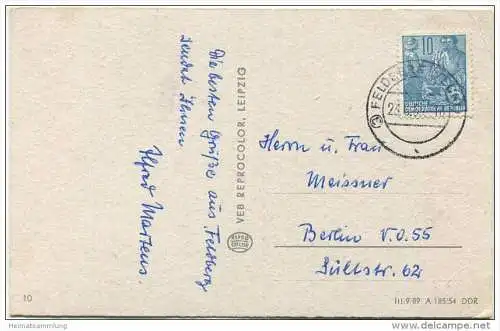 Die besten Grüße aus Feldberg
sendet Ihnen
Alfred Martens.
VEB REPROCOLOR, LEIPZIG
10
DEUTSCHE
DEMOKRATISCHE REPUBLIK
FELDBERG
Herrn u. Frau
Meissner
Berlin N.O.55
Süllstr. 62
10
III.9.89 A 185/54 DDR
Heimatsammlung